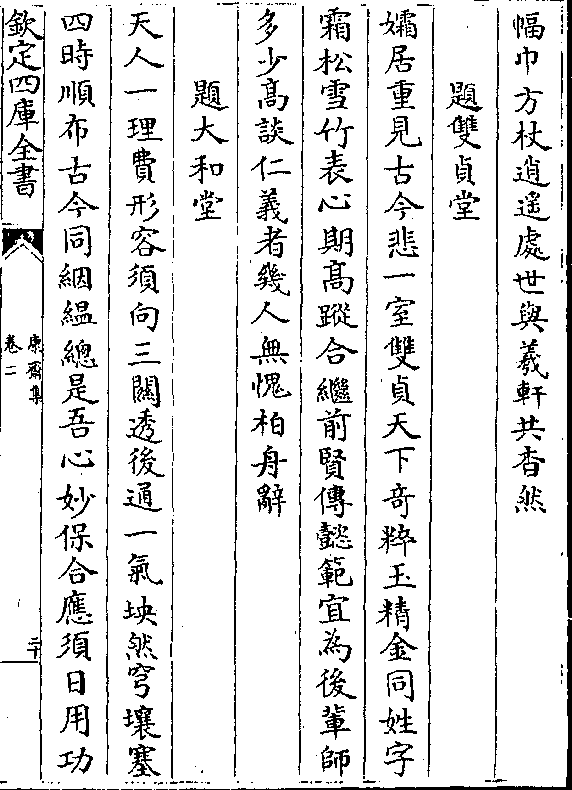 幅巾方杖逍遥處世與羲軒共杳然
題雙貞堂
孀居重見古今悲一室雙貞天下竒粹玉精金同姓字
霜松雪竹表心期髙蹤合繼前賢傳懿範宜為後軰師
多少髙談仁義者幾人無愧柏舟辭
題大和堂
天人一理費形容須向三關透後通一氣坱然穹壤塞
四時順布古今同絪緼總是吾心妙保合應須日用功
欽定四庫全書
康齋集
卷二
二十